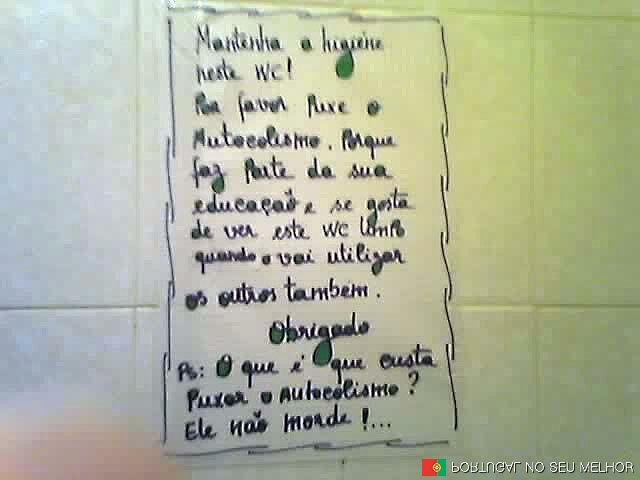 Mantenha a higiene
neste WC!
Por favor Puxe o
Autocolismo. Porque
faz Parte da sua
educação e se gosta
de ver este WC limPo
quando o vai utilizar
os outros tambem.
Obrigado
Ps: O que é que custa
Puxar o Autocolismo?
Ele não morde!...
PORTUGAL NO SEU MELHOR